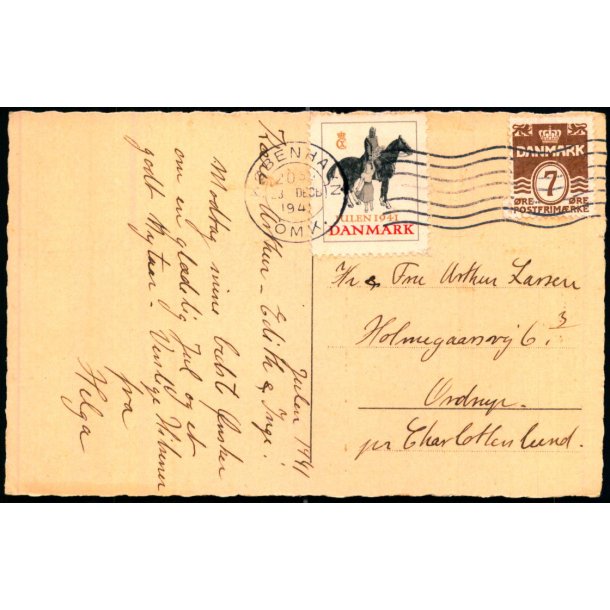 Julen 1941
Kære Arthur - Edith & Inge!
Modtag mine bedste Ønsker
om en glædelig Jul og et
godt Nytaar - Venlige Hilsner
fra
Helga
KØBENHAVN
1941
OMK.
JULEN 1941
DANMARK
DANMARK
7
ØRE ØRE
POSTFRIMÆRKE
Hr & Fru Arthur Larsen
Holmegaardsvej 6.3
Ordrup.
pr Charlottenlund.